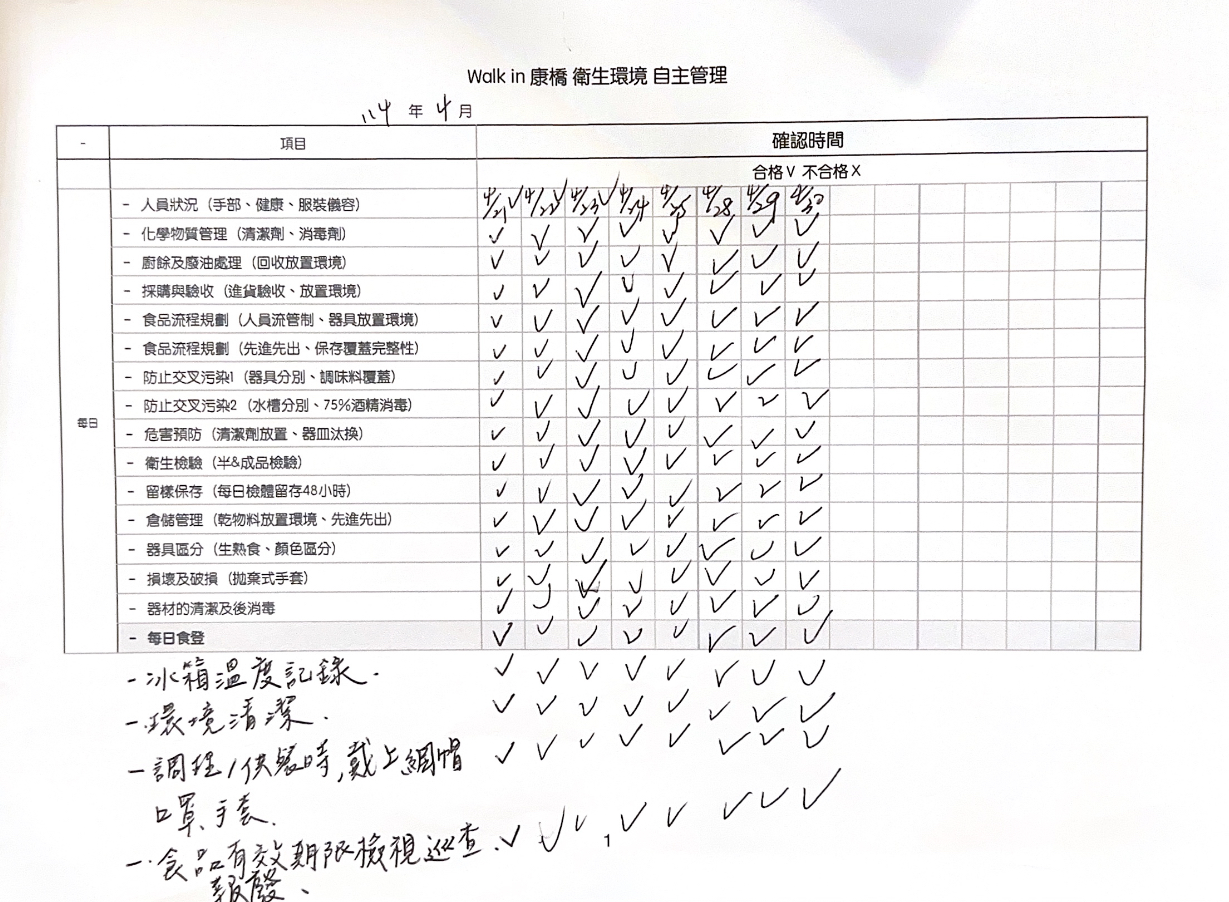 Walk in 康橋 衛生環境 自主管理
114 年 4 月
- 項目 確認時間
合格 V 不合格 X
- 人員狀況（手部、健康、服裝儀容） 4/21 ✓ 4/22 ✓ 4/23 ✓ 4/24 4/25 4/28 4/29 4/30
- 化學物質管理（清潔劑、消毒劑） ✓ ✓ ✓ ✓ ✓ ✓ ✓ ✓
- 廚餘及廢油處理（回收放置環境） ✓ ✓ ✓ ✓ ✓ ✓ ✓ ✓
- 採購與驗收（進貨驗收、放置環境） ✓ ✓ ✓ ✓ ✓ ✓ ✓ ✓
- 食品流程規劃（人員流管制、器具放置環境） ✓ ✓ ✓ ✓ ✓ ✓ ✓ ✓
- 食品流程規劃（先進先出、保存覆蓋完整性） ✓ ✓ ✓ ✓ ✓ ✓ ✓ ✓
- 防止交叉污染1（器具分別、調味料覆蓋） ✓ ✓ ✓ ✓ ✓ ✓ ✓ ✓
每日
- 防止交叉污染2（水槽分別、75%酒精消毒） ✓ ✓ ✓ ✓ ✓ ✓ ✓ ✓
- 危害預防（清潔劑放置、器皿汰換） ✓ ✓ ✓ ✓ ✓ ✓ ✓ ✓
- 衛生檢驗（半&成品檢驗） ✓ ✓ ✓ ✓ ✓ ✓ ✓ ✓
- 留樣保存（每日檢體留存48小時） ✓ ✓ ✓ ✓ ✓ ✓ ✓ ✓
- 倉儲管理（乾物料放置環境、先進先出） ✓ ✓ ✓ ✓ ✓ ✓ ✓ ✓
- 器具區分（生熟食、顏色區分） ✓ ✓ ✓ ✓ ✓ ✓ ✓ ✓
- 損壞及破損（拋棄式手套） ✓ ✓ ✓ ✓ ✓ ✓ ✓ ✓
- 器材的清潔及後消毒 ✓ ✓ ✓ ✓ ✓ ✓ ✓ ✓
- 每日食登 ✓ ✓ ✓ ✓ ✓ ✓ ✓ ✓
- 冰箱溫度記錄. ✓ ✓ ✓ ✓ ✓ ✓ ✓ ✓
- 環境清潔. ✓ ✓ ✓ ✓ ✓ ✓ ✓ ✓
- 調理/供餐時,戴上網帽 ✓ ✓ ✓ ✓ ✓ ✓ ✓ ✓
口罩、手套.
- 食品有效期限檢視巡查. ✓ ✓ ✓ ✓ ✓ ✓ ✓ ✓
報廢、